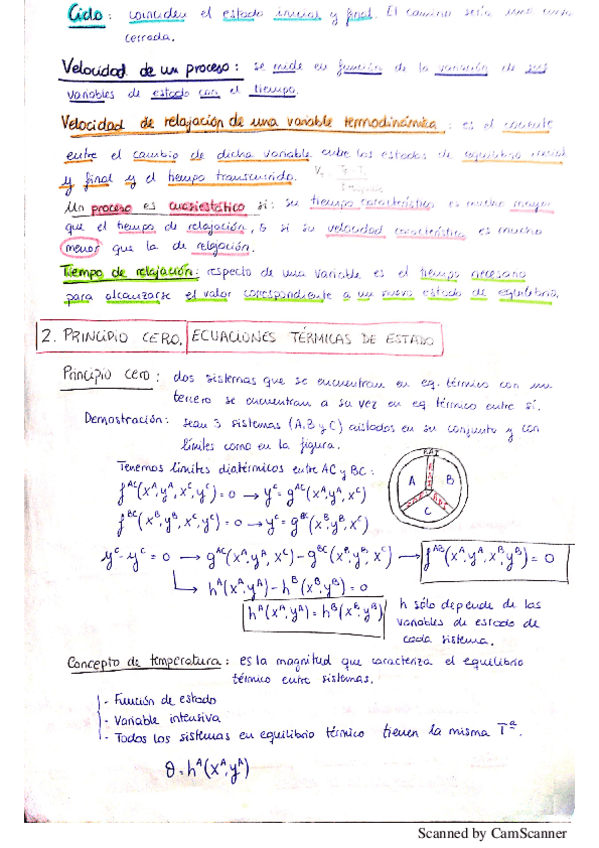 Ciclo: coinciden el estado inicial y final. El camino sería una curva
cerrada.
Velocidad de un proceso: se mide en función de la variación de sus
variables de estado con el tiempo.
Velocidad de relajación de una variable termodinámica: es el cociente
entre el cambio de dicha variable entre los estados de equilibrio inicial
y final y el tiempo transcurrido.
Un proceso es cuasiestático si: su tiempo característico es mucho mayor
que el tiempo de relajación, o si su velocidad característica es mucho
menos que la de relajación.
Tiempo de relajación: respecto de una variable es el tiempo necesario
para alcanzarse el valor correspondiente a un nuevo estado de equilibrio.
2. PRINCIPIO CERO. ECUACIONES TÉRMICAS DE ESTADO
Principio cero: dos sistemas que se encuentran en eq. térmico con un
tercero se encuentran a su vez en eq. térmico entre sí.
Demostración: sean 3 sistemas (A, B y C) aislados en su conjunto y con
límites como en la figura.
Tenemos límites diatérmicos entre AC y BC:
f^AC(x^A,y^A,x^C,y^C)=0 → y^C=g^AC(x^A,y^A,x^C)
f^BC(x^B,y^B,x^C,y^C)=0 → y^C=g^BC(x^B,y^B,x^C)
A B
C
y^C-y^C=0 → g^AC(x^A,y^A,x^C)-g^BC(x^B,y^B,x^C) → f^AB(x^A,y^A,x^B,y^B)=0
h^A(x^A,y^A)-h^B(x^B,y^B)=0
h^A(x^A,y^A)=h^B(x^B,y^B)
h sólo depende de las
variables de estado de
cada sistema.
Concepto de temperatura: es la magnitud que caracteriza el equilibrio
térmico entre sistemas.
- Función de estado
- Variable intensiva
- Todos los sistemas en equilibrio térmico tienen la misma Tª.
θ=h^A(x^A,y^A)
Scanned by CamScanner